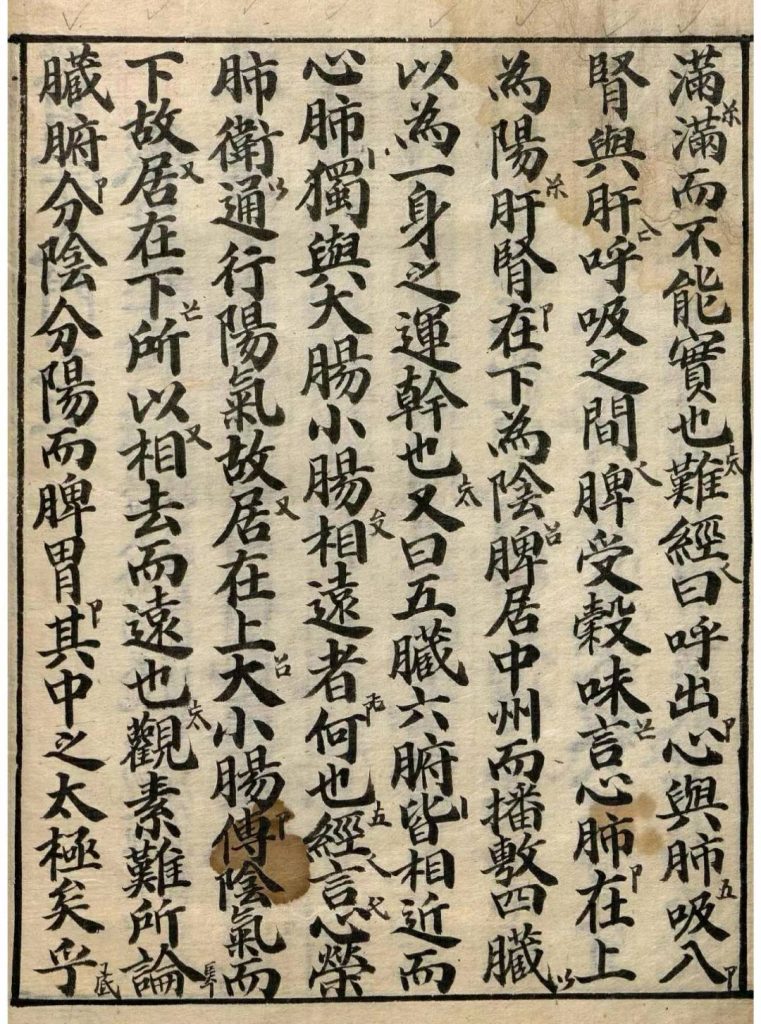 滿滿而不能實也難經曰呼出心與肺吸入
腎與肝呼吸之間脾受穀味言心肺在上
為陽肝腎在下為陰脾居中州而播敷四臓
以為一身之運幹也又曰五臓六腑皆相近而
心肺獨與大腸小腸相遠者何也經言心榮
肺衛通行陽氣故居在上大小腸傳陰氣而
下故居在下所以相去而遠也觀素難所論
臓腑分陰分陽而脾胃其中之太極矣乎